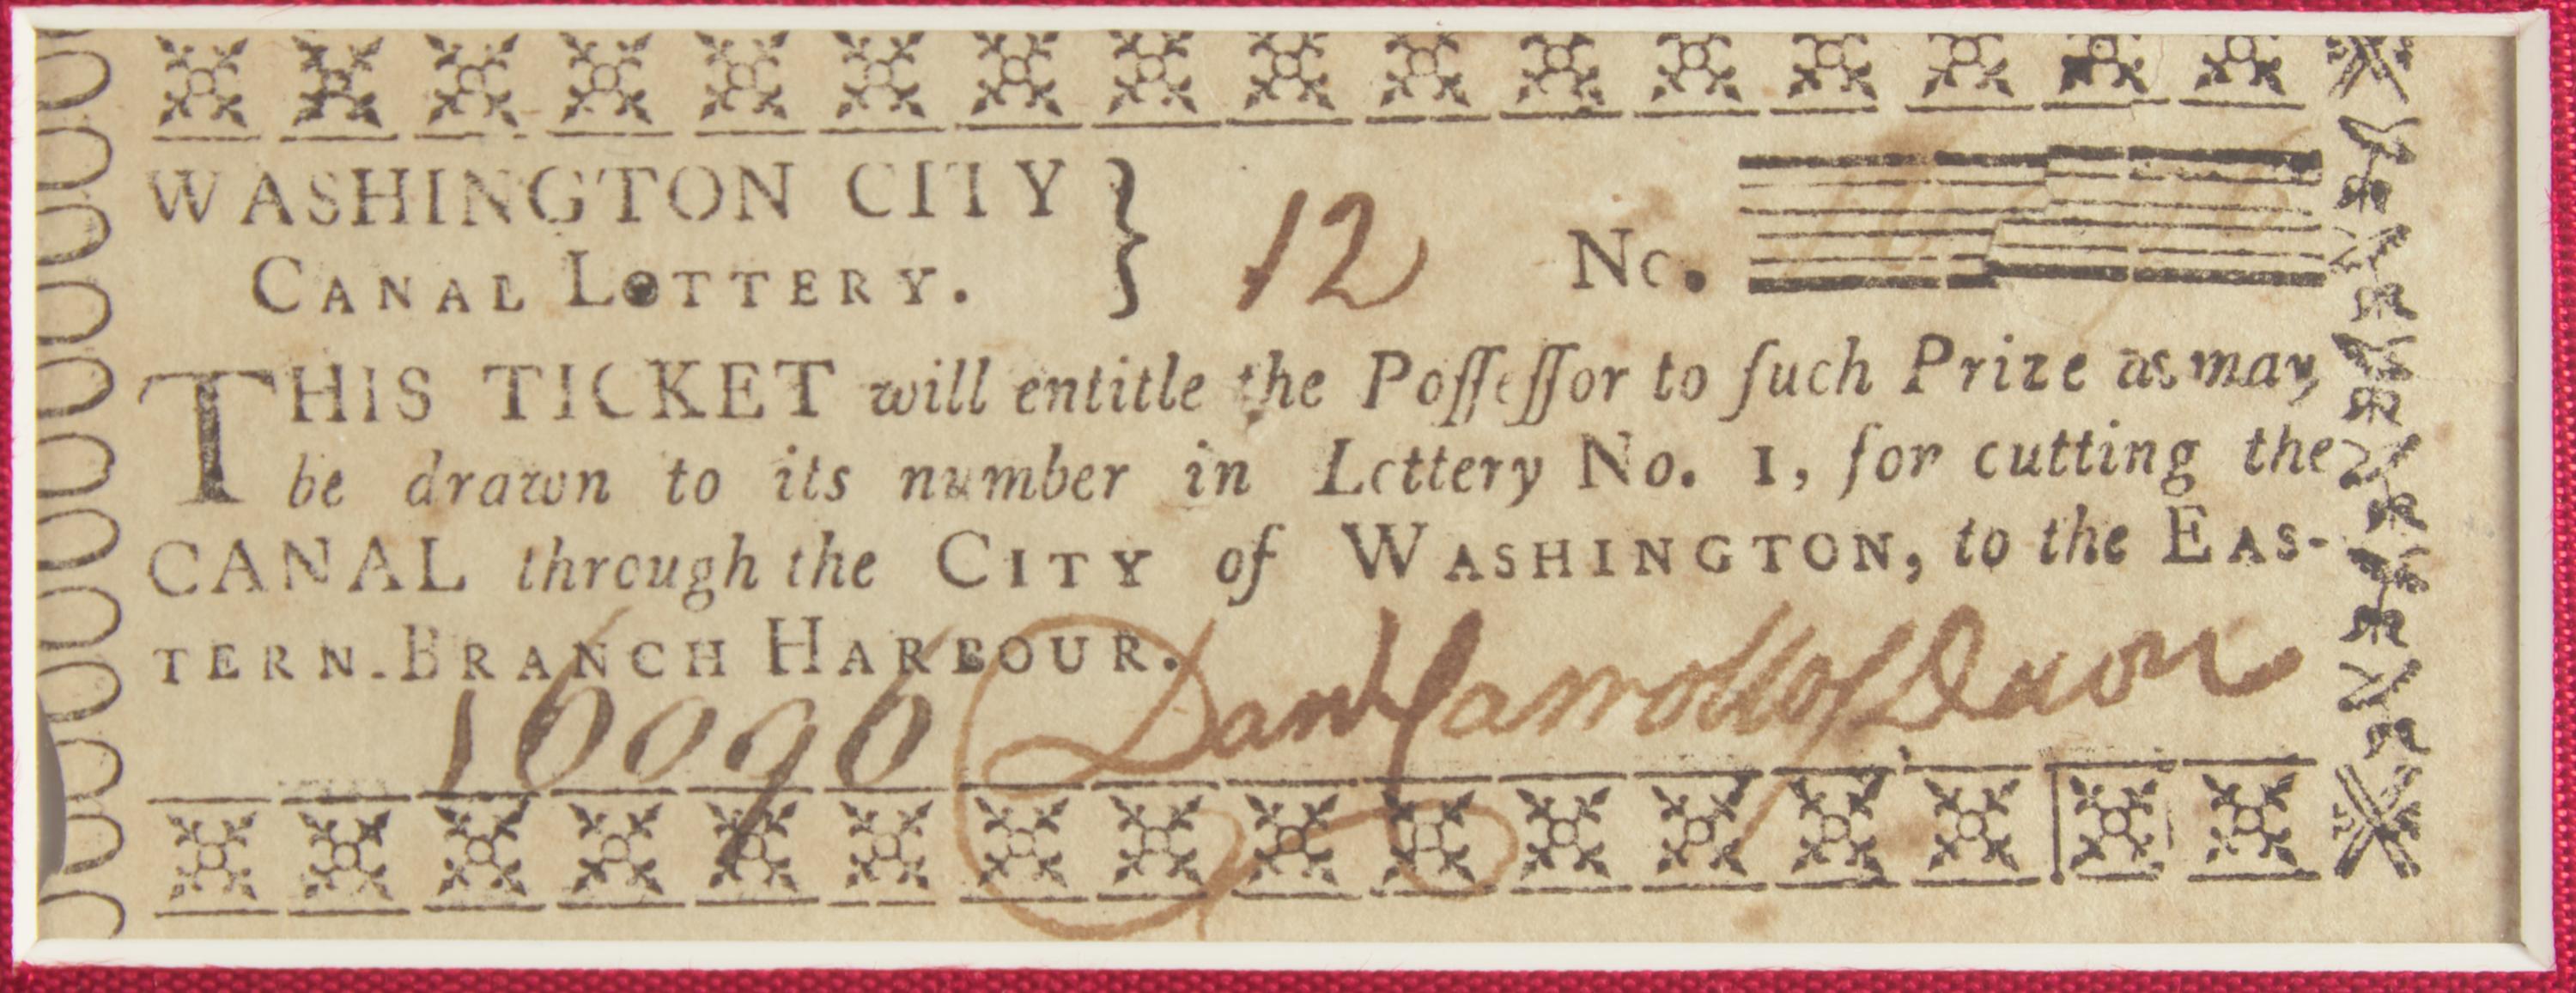 WASHINGTON CITY } 12 No.
CANAL LOTTERY.
THIS TICKET will entitle the Poſſeſſor to ſuch Prize as may
be drawn to its number in Lottery No. 1, for cutting the
CANAL through the CITY of WASHINGTON, to the EAS-
TERN BRANCH HARBOUR.
16096 Danl Carroll of Dudn